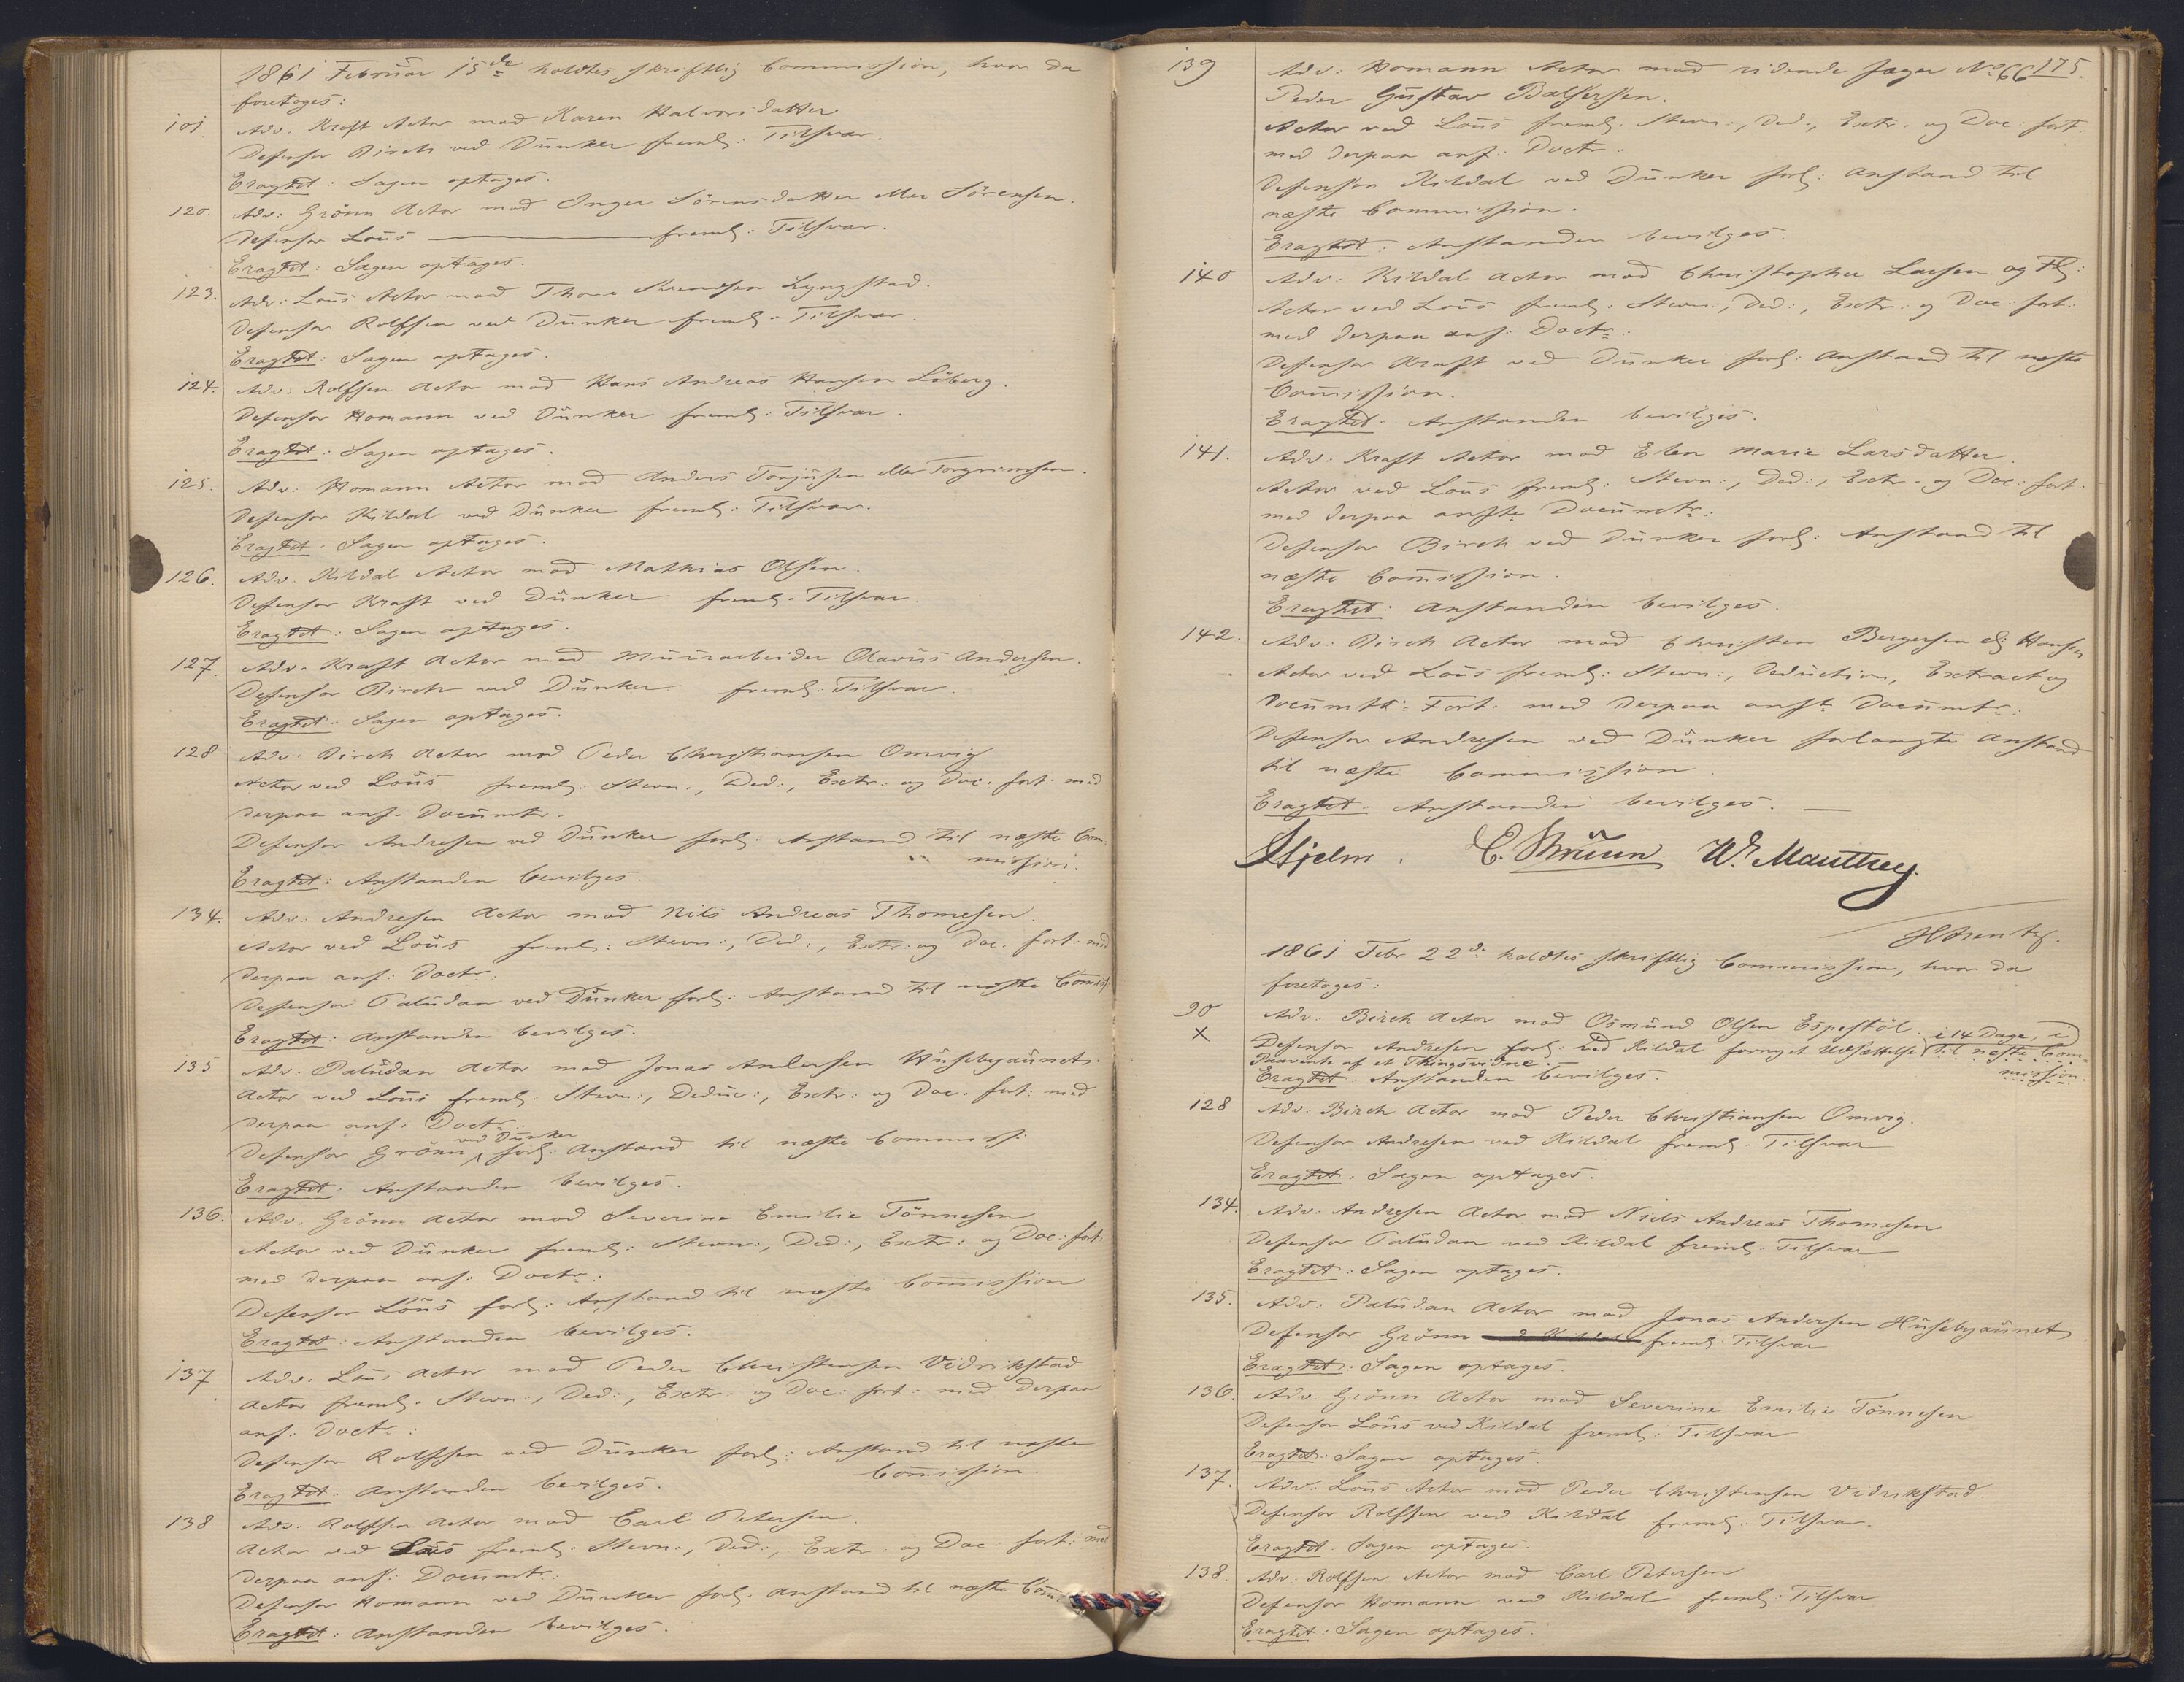 1861 Februar 15de holdtes skriftlig Commission, hvor da
foretoges:
101. Adv. Kraft Actor mod Karen Halvorsdatter
Defensor Birch ved Dunker freml: Tilsvar.
Eragtet: Sagen optages.
120. Adv: Grönn Actor mod Inger Sörensdatter eller Sörensen.
Defensor Lous ——— freml: Tilsvar.
Eragtet: Sagen optages.
123. Adv: Lous Actor mod Thore Lyngstad.
Defensor Rolfsen ved Dunker freml: Tilsvar.
Eragtet: Sagen optages.
124. Adv: Rolfsen Actor mod Hans Andreas Hansen Löberg.
Defensor Homann ved Dunker freml: Tilsvar.
Eragtet: Sagen optages.
125. Adv: Homann Actor mod Anders Torjusen eller Torgrimsen.
Defensor Kildal ved Dunker freml: Tilsvar.
Eragtet: Sagen optages.
126. Adv. Kildal Actor mod Mathias Olsen.
Defensor Kraft ved Dunker freml. Tilsvar.
Eragtet: Sagen optages.
127. Adv. Kraft Actor mod Muurarbeider Olavus Andersen.
Defensor Birch ved Dunker freml: Tilsvar.
Eragtet: Sagen optages.
128 Adv. Birch Actor mod Peder Christiansen Omvig
Actor ved Lous freml: Stevn:, Ded:, Extr: og Doc: fort: med
derpaa anf. Documtr.
Defensor Andresen ved Dunker forl. Anstand til næste Com
mission.
Eragtet: Anstanden bevilges.
134. Adv. Andresen Actor mod Nils Andreas Thomesen.
Actor ved Lous freml: Stevn:, Ded:, Extr: og Doc. fort: med
derpaa anf: Doctr:
Defensor Paludan ved Dunker forl: Anstand til næste Commiss
Eragtet: Anstanden bevilges.
135 Adv. Paludan Actor mod Jonas Andersen Husebyaunet.
Actor ved Lous freml: Stevn:, Deduc:, Extr: og Doc. fort: med
derpaa anf: Doctr:
ved Dunker
Defensor Grönn forl: Anstand til næste Commiss:
Eragtet: Anstanden bevilges.
136. Adv. Grönn Actor mod Severine Emilie Tönnesen
Actor ved Dunker freml: Stevn:, Ded:, Extr: og Doc: fort
med derpaa anf: Doctr:
Defensor Lous forl: Anstand til næste Commission
Eragtet: Anstanden bevilges.
137 Adv. Lous Actor mod Peder Christensen Vidrikstad
Actor freml. Stevn:, Ded:, Extr: og Doc: fort: med derpaa
anf: Doctr:
Defensor Rolfsen ved Dunker forl: Anstand til næste
Commission.
Eragtet: Anstanden bevilges.
138 Adv. Rolfsen Actor mod Carl Petersen.
Actor ved Lous freml. Stevn:, Ded:, Extr: og Doc: fort: med
derpaa anf: Documtr:
Defensor Homann ved Dunker forl. Anstand til næste Com
Eragtet: Anstanden bevilges.
175.
139 Adv: Homann Actor mod ridende Jæger No 66
Peder Gustav Balsersen.
Actor ved Lous freml: Stevn:, Ded:, Extr. og Doc: fort.
med derpaa anf: Doctr.
Defensor Kildal ved Dunker forl: Anstand til
næste Commission.
Eragtet: Anstanden bevilges.
140 Adv: Kildal Actor mod Christopher Larsen og Fl:
Actor ved Lous freml: Stevn:, Ded:, Extr: og Doc: fort:
med derpaa anf: Doctr:
Defensor Kraft ved Dunker forl: Anstand til næste
Commission.
Eragtet: Anstanden bevilges.
141. Adv. Kraft Actor mod Elen Marie Larsdatter.
Actor ved Lous freml: Stevn:, Ded:, Extr. og Doc: fort.
med derpaa anfte Documtr:
Defensor Birch ved Dunker forl: Anstand til
næste Commission.
Eragtet: Anstanden bevilges.
142. Adv. Birch Actor mod Christen Bergersen elj Hansen
Actor ved Lous freml: Stevn:, Deduction, Extract og
Documts: Fort. med derpaa anft. Documtr:
Defensor Andresen ved Dunker forlangte Anstand
til næste Commission.
Eragtet: Anstanden bevilges. —
Hjelm. E. Bruun W. Manthey.
1861 Febr 22de holdtes skriftlig Commission, hvor da
foretoges:
90 Adv. Birch Actor mod Osmund Olsen Espestöl. i 14 Dage, i
x Defensor Andresen forl: ved Kildal fornyet Udsættelse til næste Com-
mission.
Paavente af et Thingsvidne.—
Eragtet: Anstanden bevilges.
128 Adv. Birch Actor mod Peder Christiansen Omvig.
Defensor Andresen ved Kildal freml. Tilsvar
Eragtet. Sagen optages.
134. Adv. Andresen Actor mod Niels Andreas Thomesen
Defensor Paludan ved Kildal freml. Tilsvar
Eragtet: Sagen optages.
135. Adv. Paludan Actor mod Jonas Andersen Husebyaunet
Defensor Grönn freml: Tilsvar
Eragtet: Sagen optages.
136. Adv. Grönn Actor mod Severine Emilie Tönnesen
Defensor Lous ved Kildal freml: Tilsvar
Eragtet: Sagen optages.
137. Adv. Lous Actor mod Peder Christensen Vidrikstad
Defensor Rolfsen ved Kildal freml. Tilsvar.
Eragtet. Sagen optages.
138. Adv. Rolfsen Actor mod Carl Petersen
Defensor Homann ved Kildal freml: Tilsvar
Eragtet: Sagen optages.